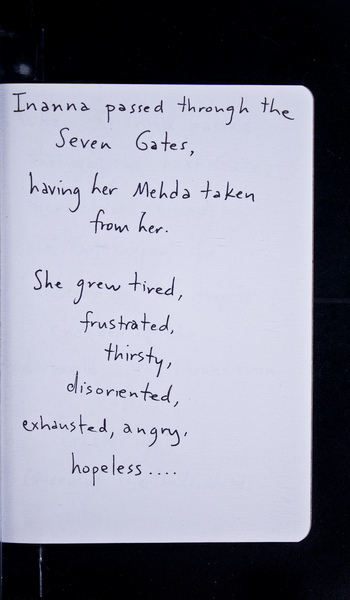 Inanna passed through the
Seven Gates,
having her Mehda taken
from her.
She grew tired,
frustrated,
thirsty,
disoriented,
exhausted, angry,
hopeless....